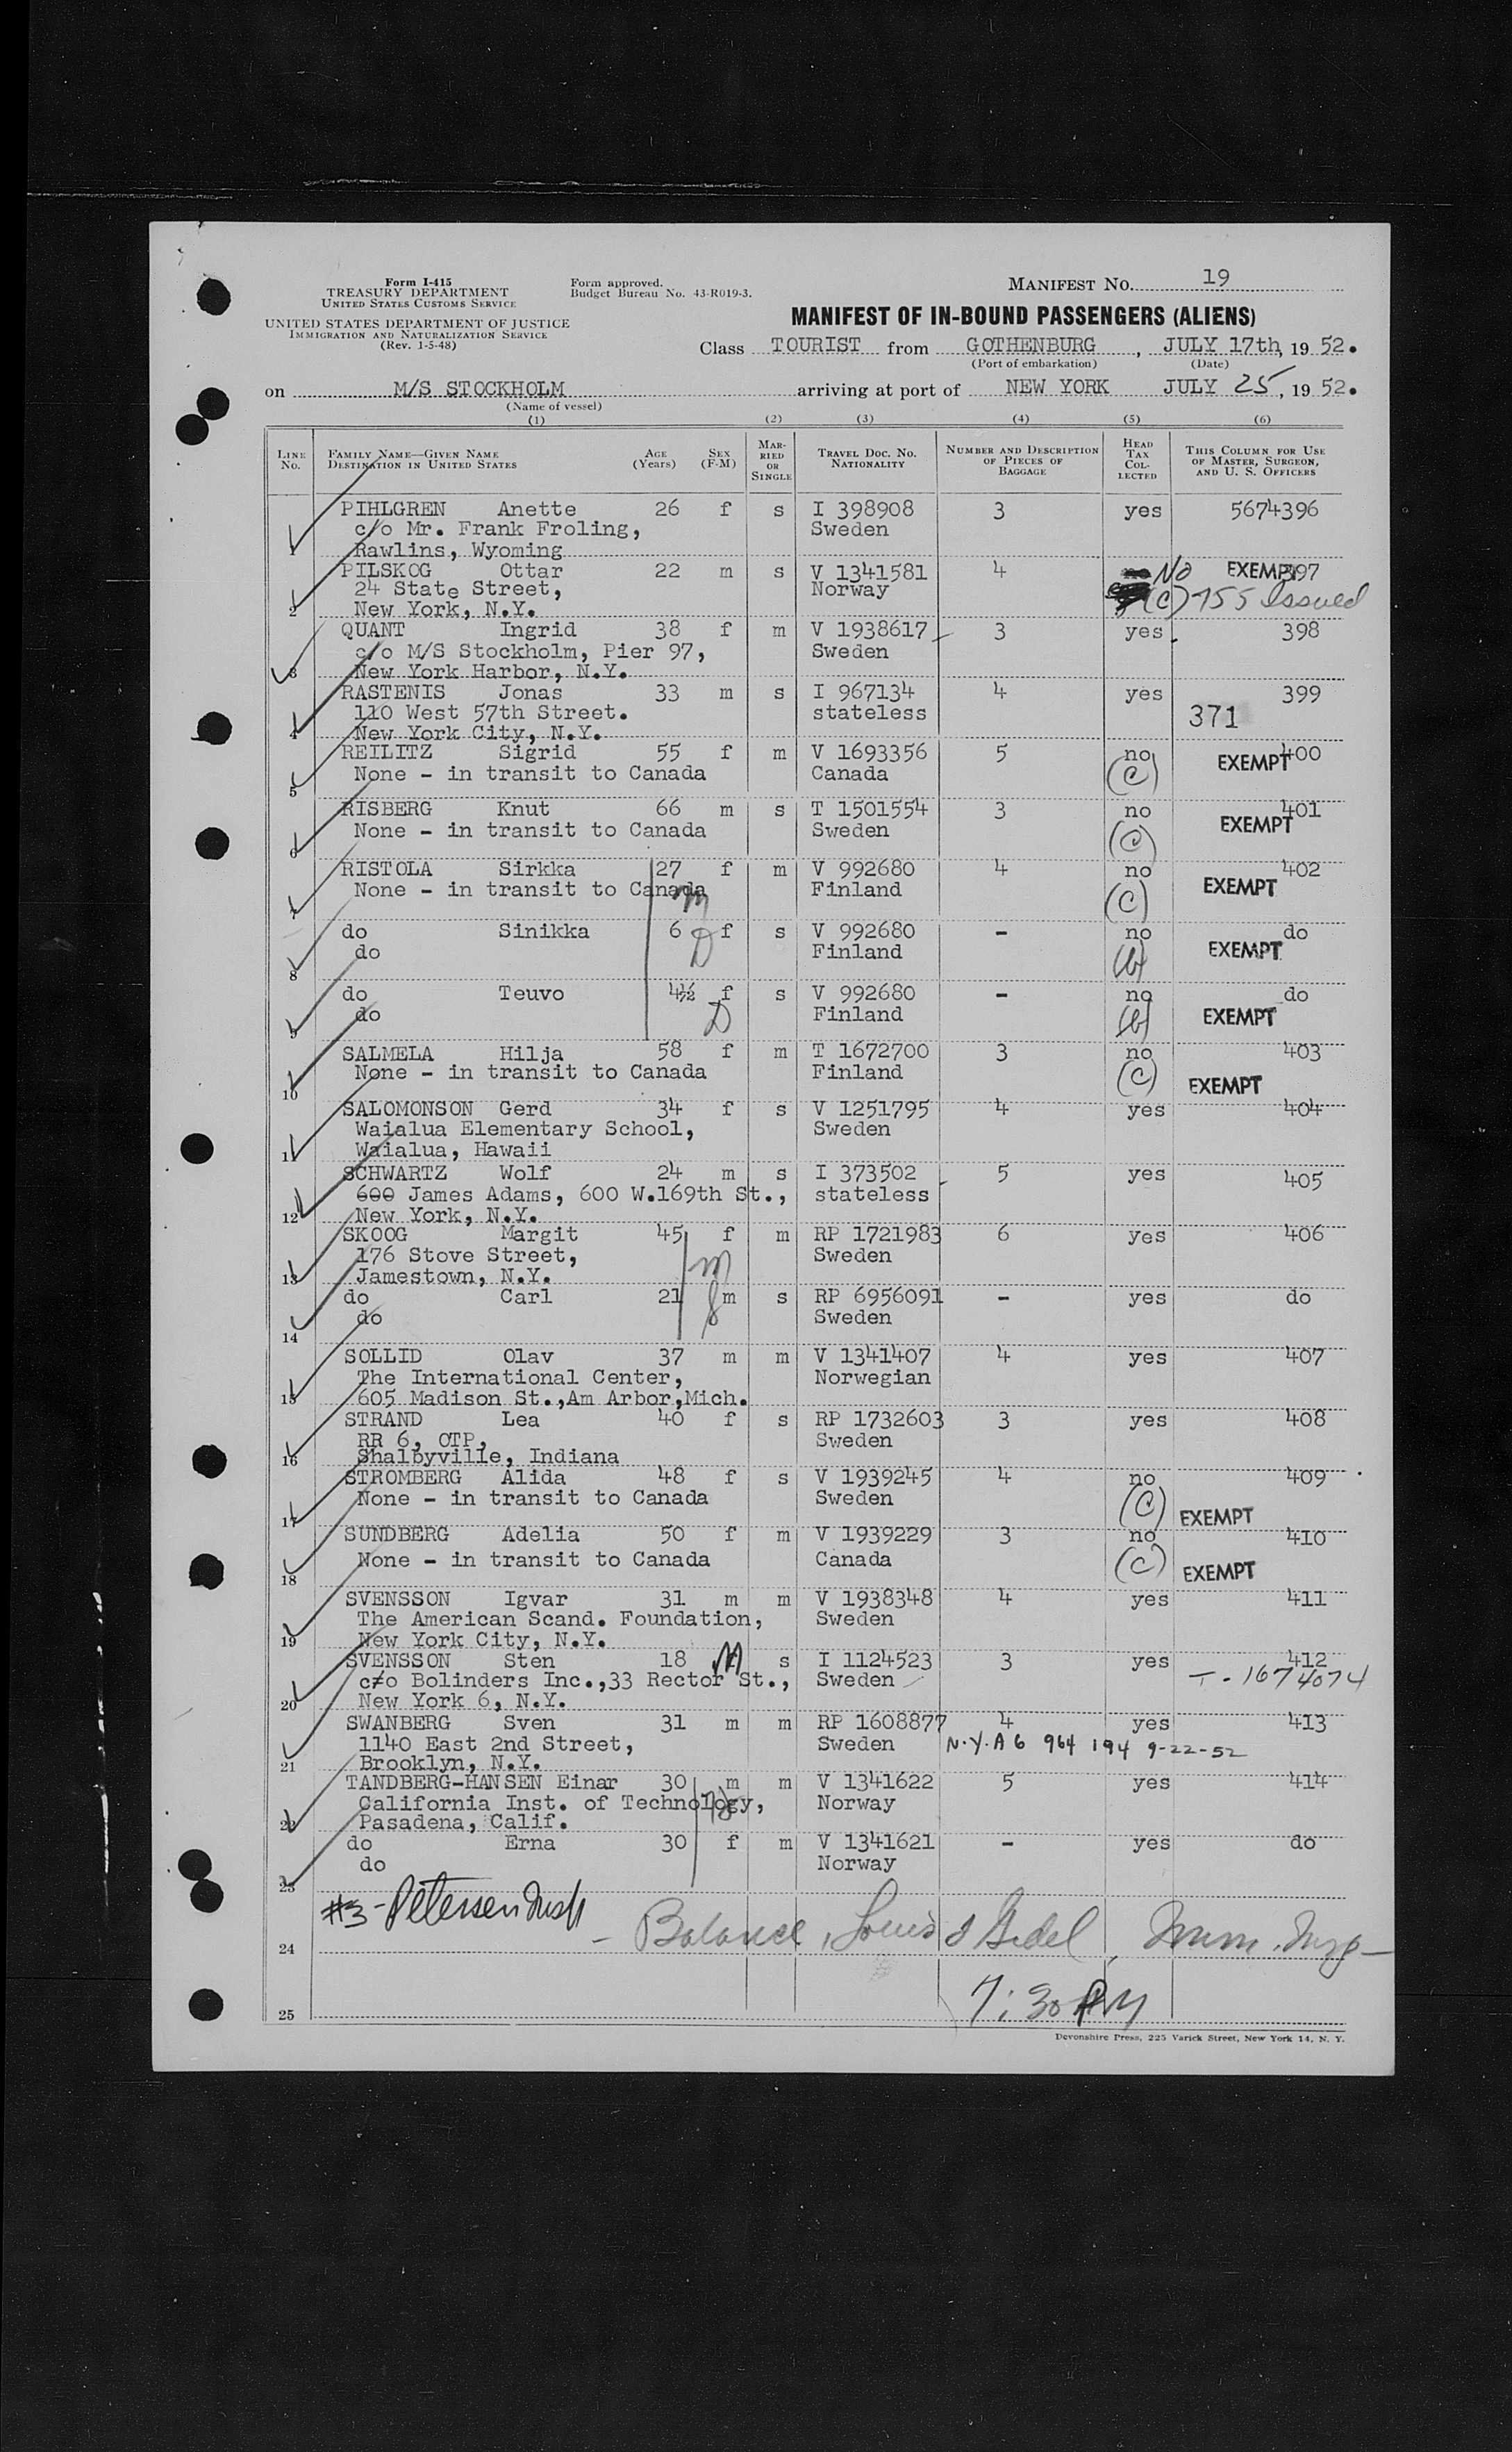 Form I-415
TREASURY DEPARTMENT
UNITED STATES CUSTOMS SERVICE
UNITED STATES DEPARTMENT OF JUSTICE
IMMIGRATION AND NATURALIZATION SERVICE
(Rev. 1-5-48)
Form approved.
Budget Bureau No. 43-R019-3.
MANIFEST No. 19
MANIFEST OF IN-BOUND PASSENGERS (ALIENS)
Class TOURIST from GOTHENBURG, JULY 17th, 19 52.
(Port of embarkation) (Date)
on M/S STOCKHOLM arriving at port of NEW YORK JULY 25, 19 52.
(Name of vessel)
(1) (2) (3) (4) (5) (6)
LINE No. FAMILY NAME—GIVEN NAME DESTINATION IN UNITED STATES AGE (Years) SEX (F-M) MARRIED OR SINGLE TRAVEL DOC. NO. NATIONALITY NUMBER AND DESCRIPTION OF PIECES OF BAGGAGE HEAD TAX COLLECTED THIS COLUMN FOR USE OF MASTER, SURGEON, AND U. S. OFFICERS
PIHLGREN Anette 26 f s I 398908 3 yes 5674396
c/o Mr. Frank Froling, Sweden
1 Rawlins, Wyoming
PILSKOG Ottar 22 m s V 1341581 4 No EXEMPT 397
24 State Street, Norway (C) 755 Issued
2 New York, N.Y.
QUANT Ingrid 38 f m V 1938617 3 yes 398
c/o M/S Stockholm, Pier 97, Sweden
3 New York Harbor, N.Y.
RASTENIS Jonas 33 m s I 967134 4 yes 399
110 West 57th Street. stateless 371
4 New York City, N.Y.
REILITZ Sigrid 55 f m V 1693356 5 no EXEMPT 400
None - in transit to Canada Canada (C)
5
RISBERG Knut 66 m s T 1501554 3 no 401
None - in transit to Canada Sweden (C) EXEMPT
6
RISTOLA Sirkka 27 f m V 992680 4 no 402
None - in transit to Canada Finland (C) EXEMPT
7 m
do Sinikka 6 f s V 992680 - no do
do D Finland (b) EXEMPT
8
do Teuvo 4½ f s V 992680 - no do
do D Finland (b) EXEMPT
9
SALMELA Hilja 58 f m T 1672700 3 no 403
None - in transit to Canada Finland (C) EXEMPT
10
SALOMONSON Gerd 34 f s V 1251795 4 yes 404
Waialua Elementary School, Sweden
11 Waialua, Hawaii
SCHWARTZ Wolf 24 m s I 373502 5 yes 405
600 James Adams, 600 W.169th St., stateless
12 New York, N.Y.
SKOOG Margit 45 f m RP 1721983 6 yes 406
176 Stove Street, m Sweden
13 Jamestown, N.Y.
do Carl 21 m s RP 6956091 - yes do
do Sweden
14
SOLLID Olav 37 m m V 1341407 4 yes 407
The International Center, Norwegian
15 605 Madison St.,Am Arbor,Mich.
STRAND Lea 40 f s RP 1732603 3 yes 408
RR 6, OTP, Sweden
16 Shalbyville, Indiana
STROMBERG Alida 48 f s V 1939245 4 no 409
None - in transit to Canada Sweden (C) EXEMPT
17
SUNDBERG Adelia 50 f m V 1939229 3 no 410
None - in transit to Canada Canada (C) EXEMPT
18
SVENSSON Igvar 31 m m V 1938348 4 yes 411
The American Scand. Foundation, Sweden
19 New York City, N.Y.
SVENSSON Sten 18 M s I 1124523 3 yes 412
c/o Bolinders Inc.,33 Rector St., Sweden T-1674074
20 New York 6, N.Y.
SWANBERG Sven 31 m m RP 1608877 4 yes 413
1140 East 2nd Street, Sweden N.Y.A6 964 194 9-22-52
21 Brooklyn, N.Y.
TANDBERG-HANSEN Einar 30 m m V 1341622 5 yes 414
California Inst. of Technology, Norway
22 Pasadena, Calif.
do Erna 30 f m V 1341621 - yes do
do Norway
23
#3- Petersen Insp
24 - Balance, Louis J Gidel, Imm. Insp-
7:30 PM
25
Devonshire Press, 225 Varick Street, New York 14, N. Y.